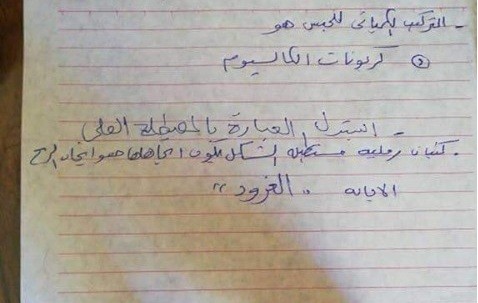 - التركيب الكيميائى للجبس هو
② كربونات الكالسيوم
- استبدل العبارة بالمصطلح العلمى
. كثبان رملية مستطيلة الشكل يكون اتجاهها هو اتجاه الريح
الاجابه " الغرود "